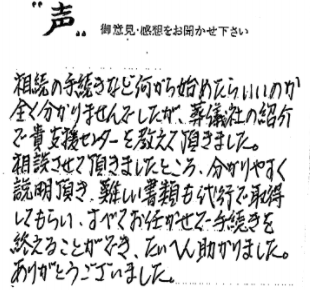 "声" 御意見・感想をお聞かせ下さい
相続の手続きなど何から始めたらいいのか
全く分かりませんでしたが、葬儀社の紹介
で貴支援センターを教えて頂きました。
相談させて頂きましたところ、分かりやすく
説明頂き、難しい書類も代行で取得
してもらい、すべてお任せで手続きを
終えることができ、たいへん助かりました。
ありがとうございました。